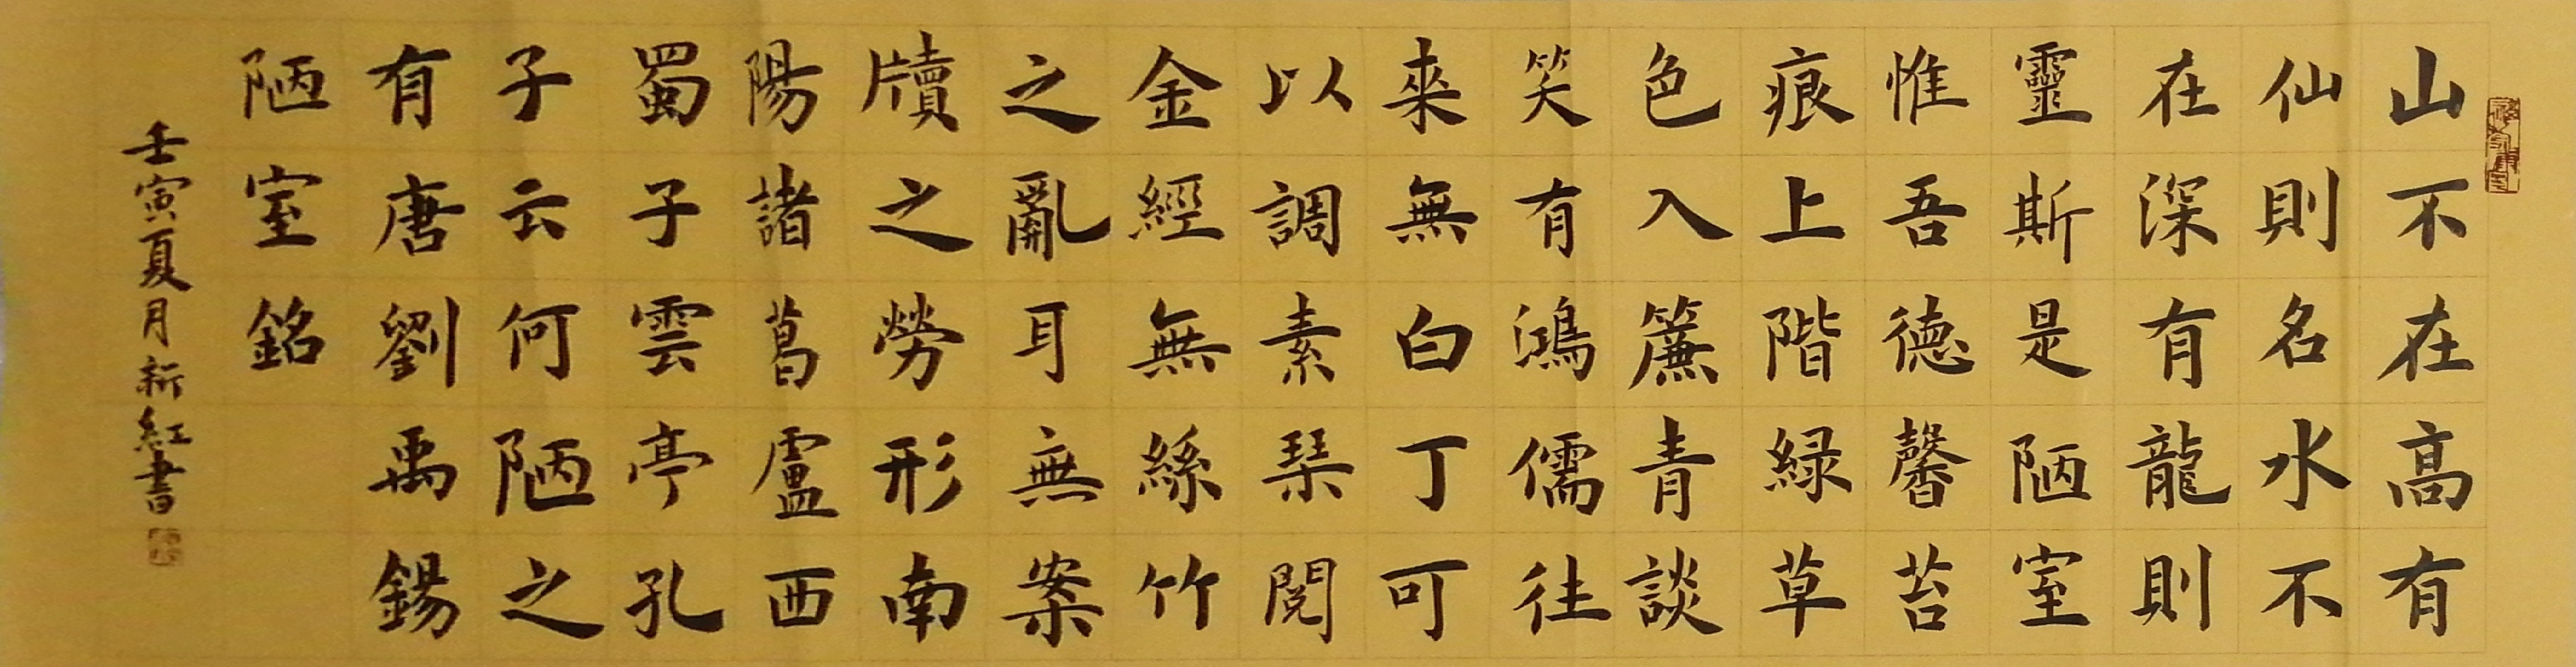 山不在高有
仙則名水不
在深有龍則
靈斯是陋室
惟吾德馨苔
痕上階緑草
色入簾青談
笑有鴻儒往
來無白丁可
以調素琴閱
金經無絲竹
之亂耳無案
牘之勞形南
陽諸葛廬西
蜀子雲亭孔
子云何陋之
有唐劉禹錫
陋室銘
壬寅夏月新紅書